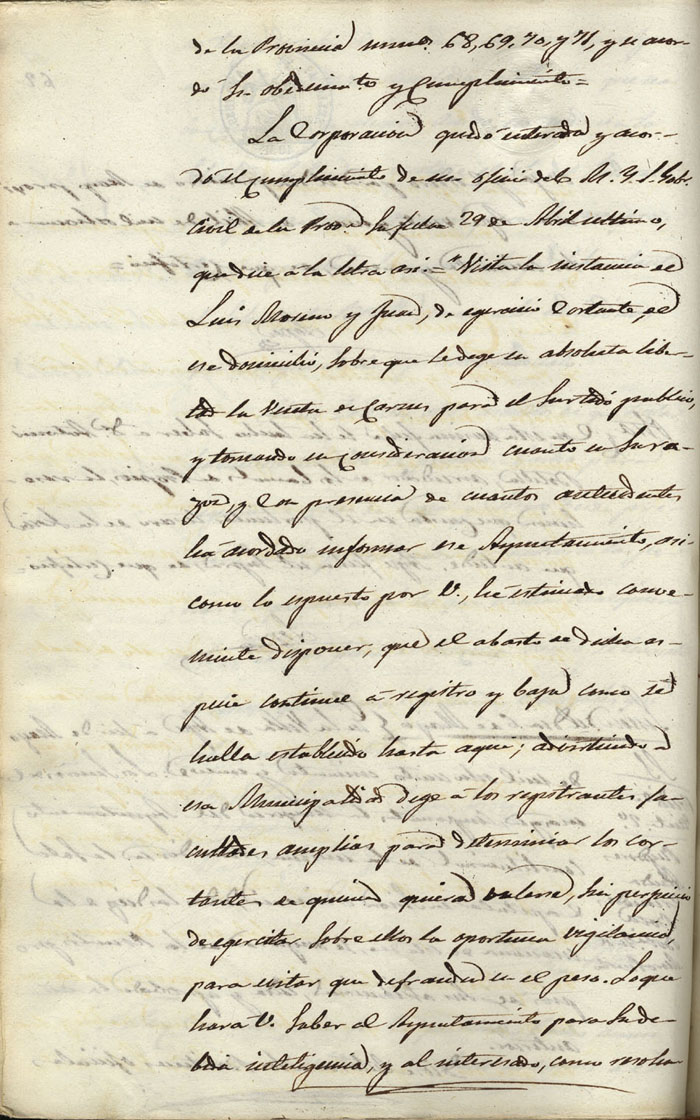 de la Provincia num.s 68, 69, 70, y 71, y se acor-
dó su obedecimto y Cumplimiento=
La Corporacion quedó enterada y acor-
dó el Cumplimiento de un oficio del M. Y. S. Gob.
Civil de la Prova su fecha 29 de Abril ultimo,
que dice a la letra asi.="Vista la instancia de
Luis Moreno y Juan, de egercicio Cortante, de
ese domicilio, sobre que se dege en absoluta liber-
tad la Venta de Carnes para el Surtido publico,
y tomando en Consideracion cuanto en su ra-
zon, y con presencia de cuantos antecedentes
ha acordado informar ese Ayuntamiento, asi
como lo espuesto por V., he estimado conve-
niente disponer, que el abasto de dicha es-
pecie continue á registro y baja como se
halla establecido hasta aqui; advirtiendo a
esa Municipalidad dege á los registrantes fa-
cultades amplias para determinar los cor-
tantes de quien quieran valerse, sin perjuicio
de egercitar sobre ellos la oportuna vigilancia,
para evitar que defrauden en el peso. Lo que
hara V. saber al Ayuntamiento para su de-
bida inteligencia, y al interesado, como resolu-